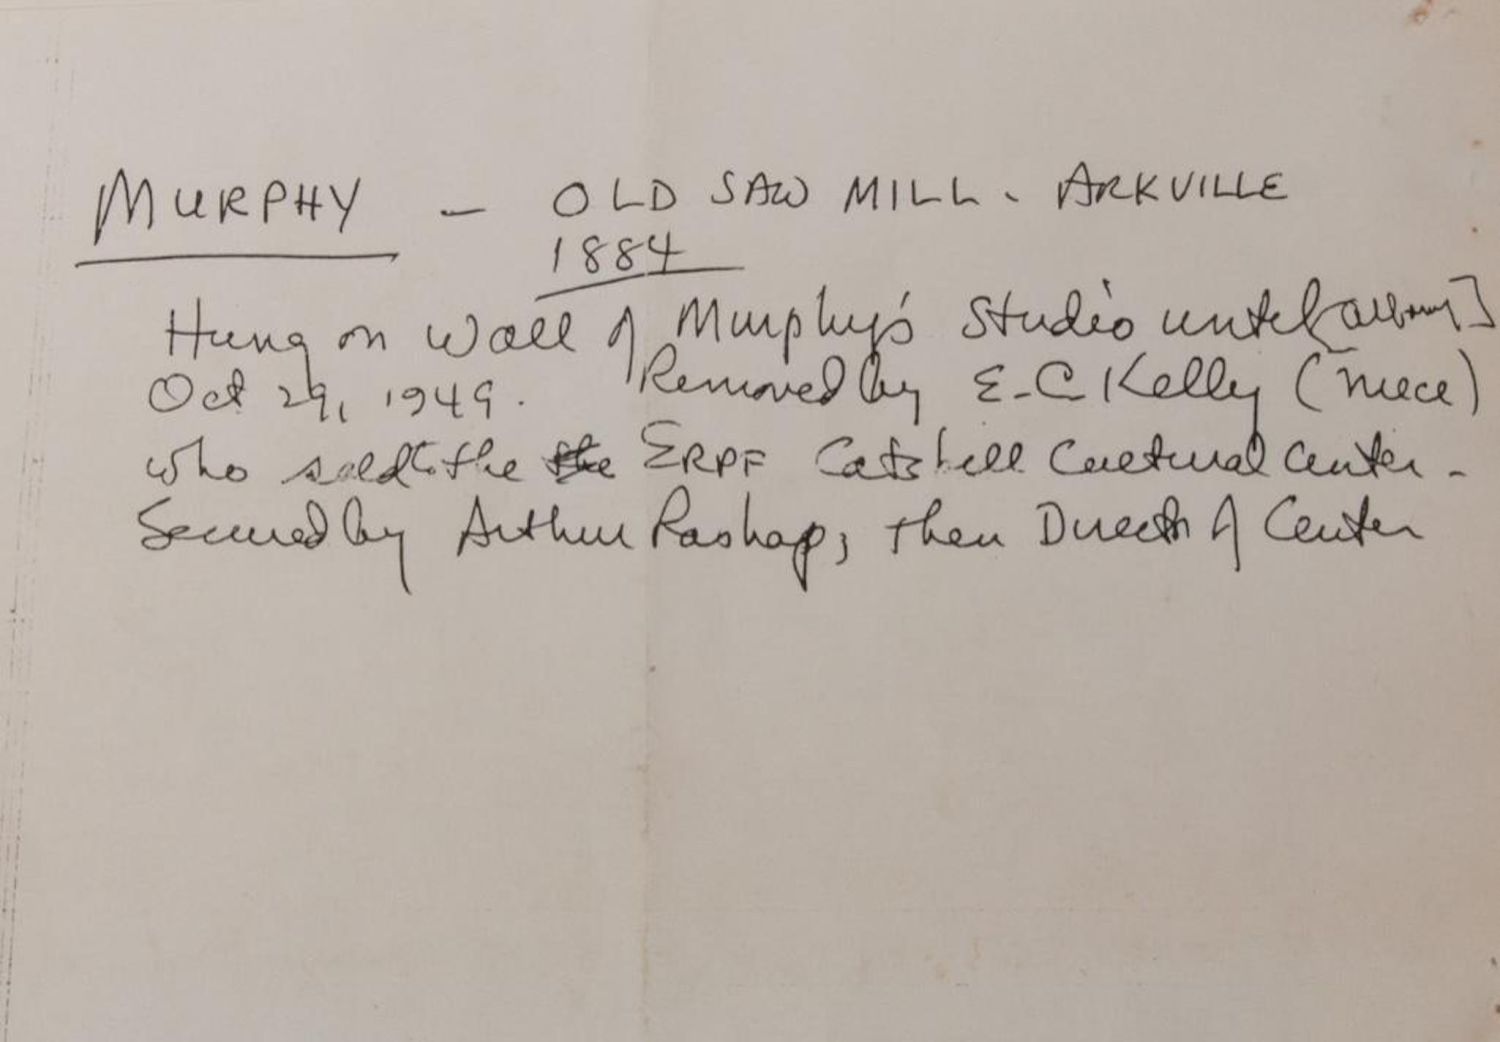 MURPHY - OLD SAW MILL. ARKVILLE
1884
Hung on wall of Murphy's Studio until
Oct 29, 1949. Removed by E.C Kelly (niece)
who sold to the ERPF Catskill Cultural Center -
Secured by Arthur Rashap, then Director of Center